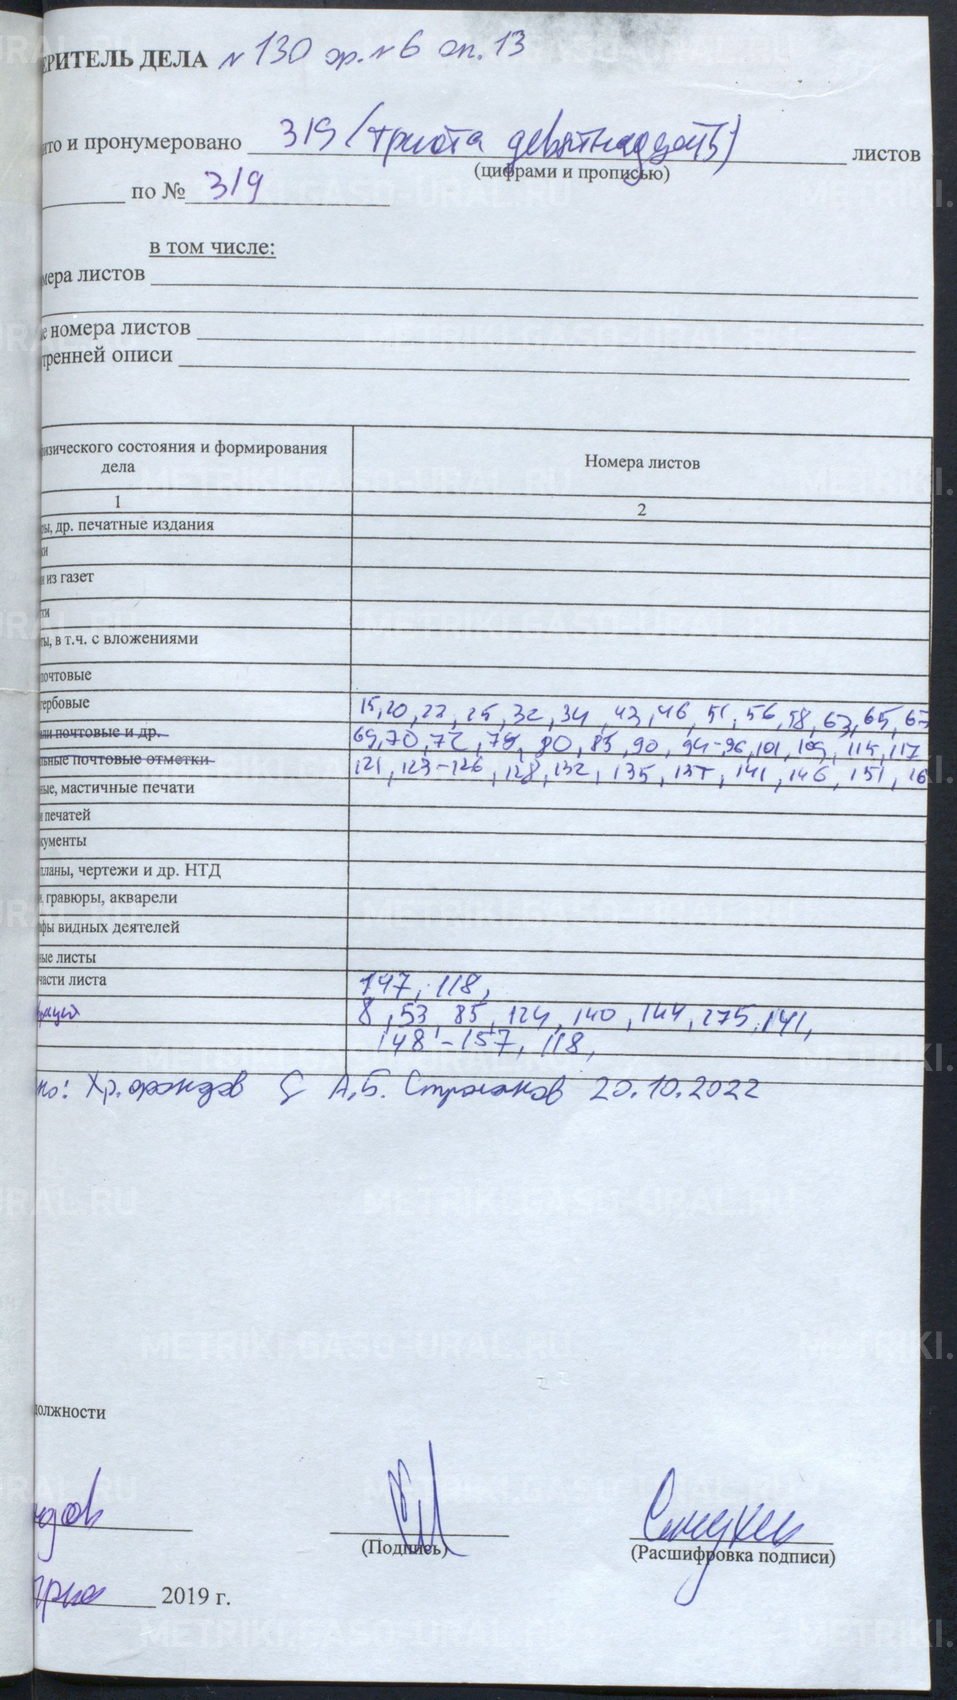 ЕРИТЕЛЬ ДЕЛА №130 ф.№6 оп.13
ито и пронумеровано 319 (триста девятнадцать) листов
(цифрами и прописью)
по № 319
в том числе:
мера листов
е номера листов
тренней описи
физического состояния и формирования дела
Номера листов
1 2
ры, др. печатные издания
ки
и из газет
тки
ты, в т.ч. с вложениями
почтовые
гербовые 15, 20, 22, 25, 32, 34, 43, 46, 51, 56, 58, 63, 65, 67
ли почтовые и др. 69, 70, 72, 78, 80, 85, 90, 94-96, 101, 109, 114, 117
льные почтовые отметки 121, 123-126, 128, 132, 135, 137, 141, 146, 151, 16
ные, мастичные печати
и печатей
кументы
планы, чертежи и др. НТД
, гравюры, акварели
фы видных деятелей
ные листы
части листа 147, 118,
8, 53, 85, 124, 140, 144, 275, 141,
148-157, 118,
но: Хр. фондов А.Б. Строганов 20.10.2022
должности
ндов
(Подпись)
(Расшифровка подписи)
2019 г.
METRIKI.GASO-URAL.RU